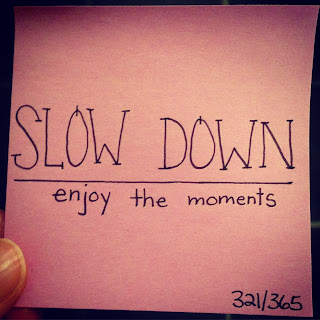 SLOW DOWN
enjoy the moments
321/365